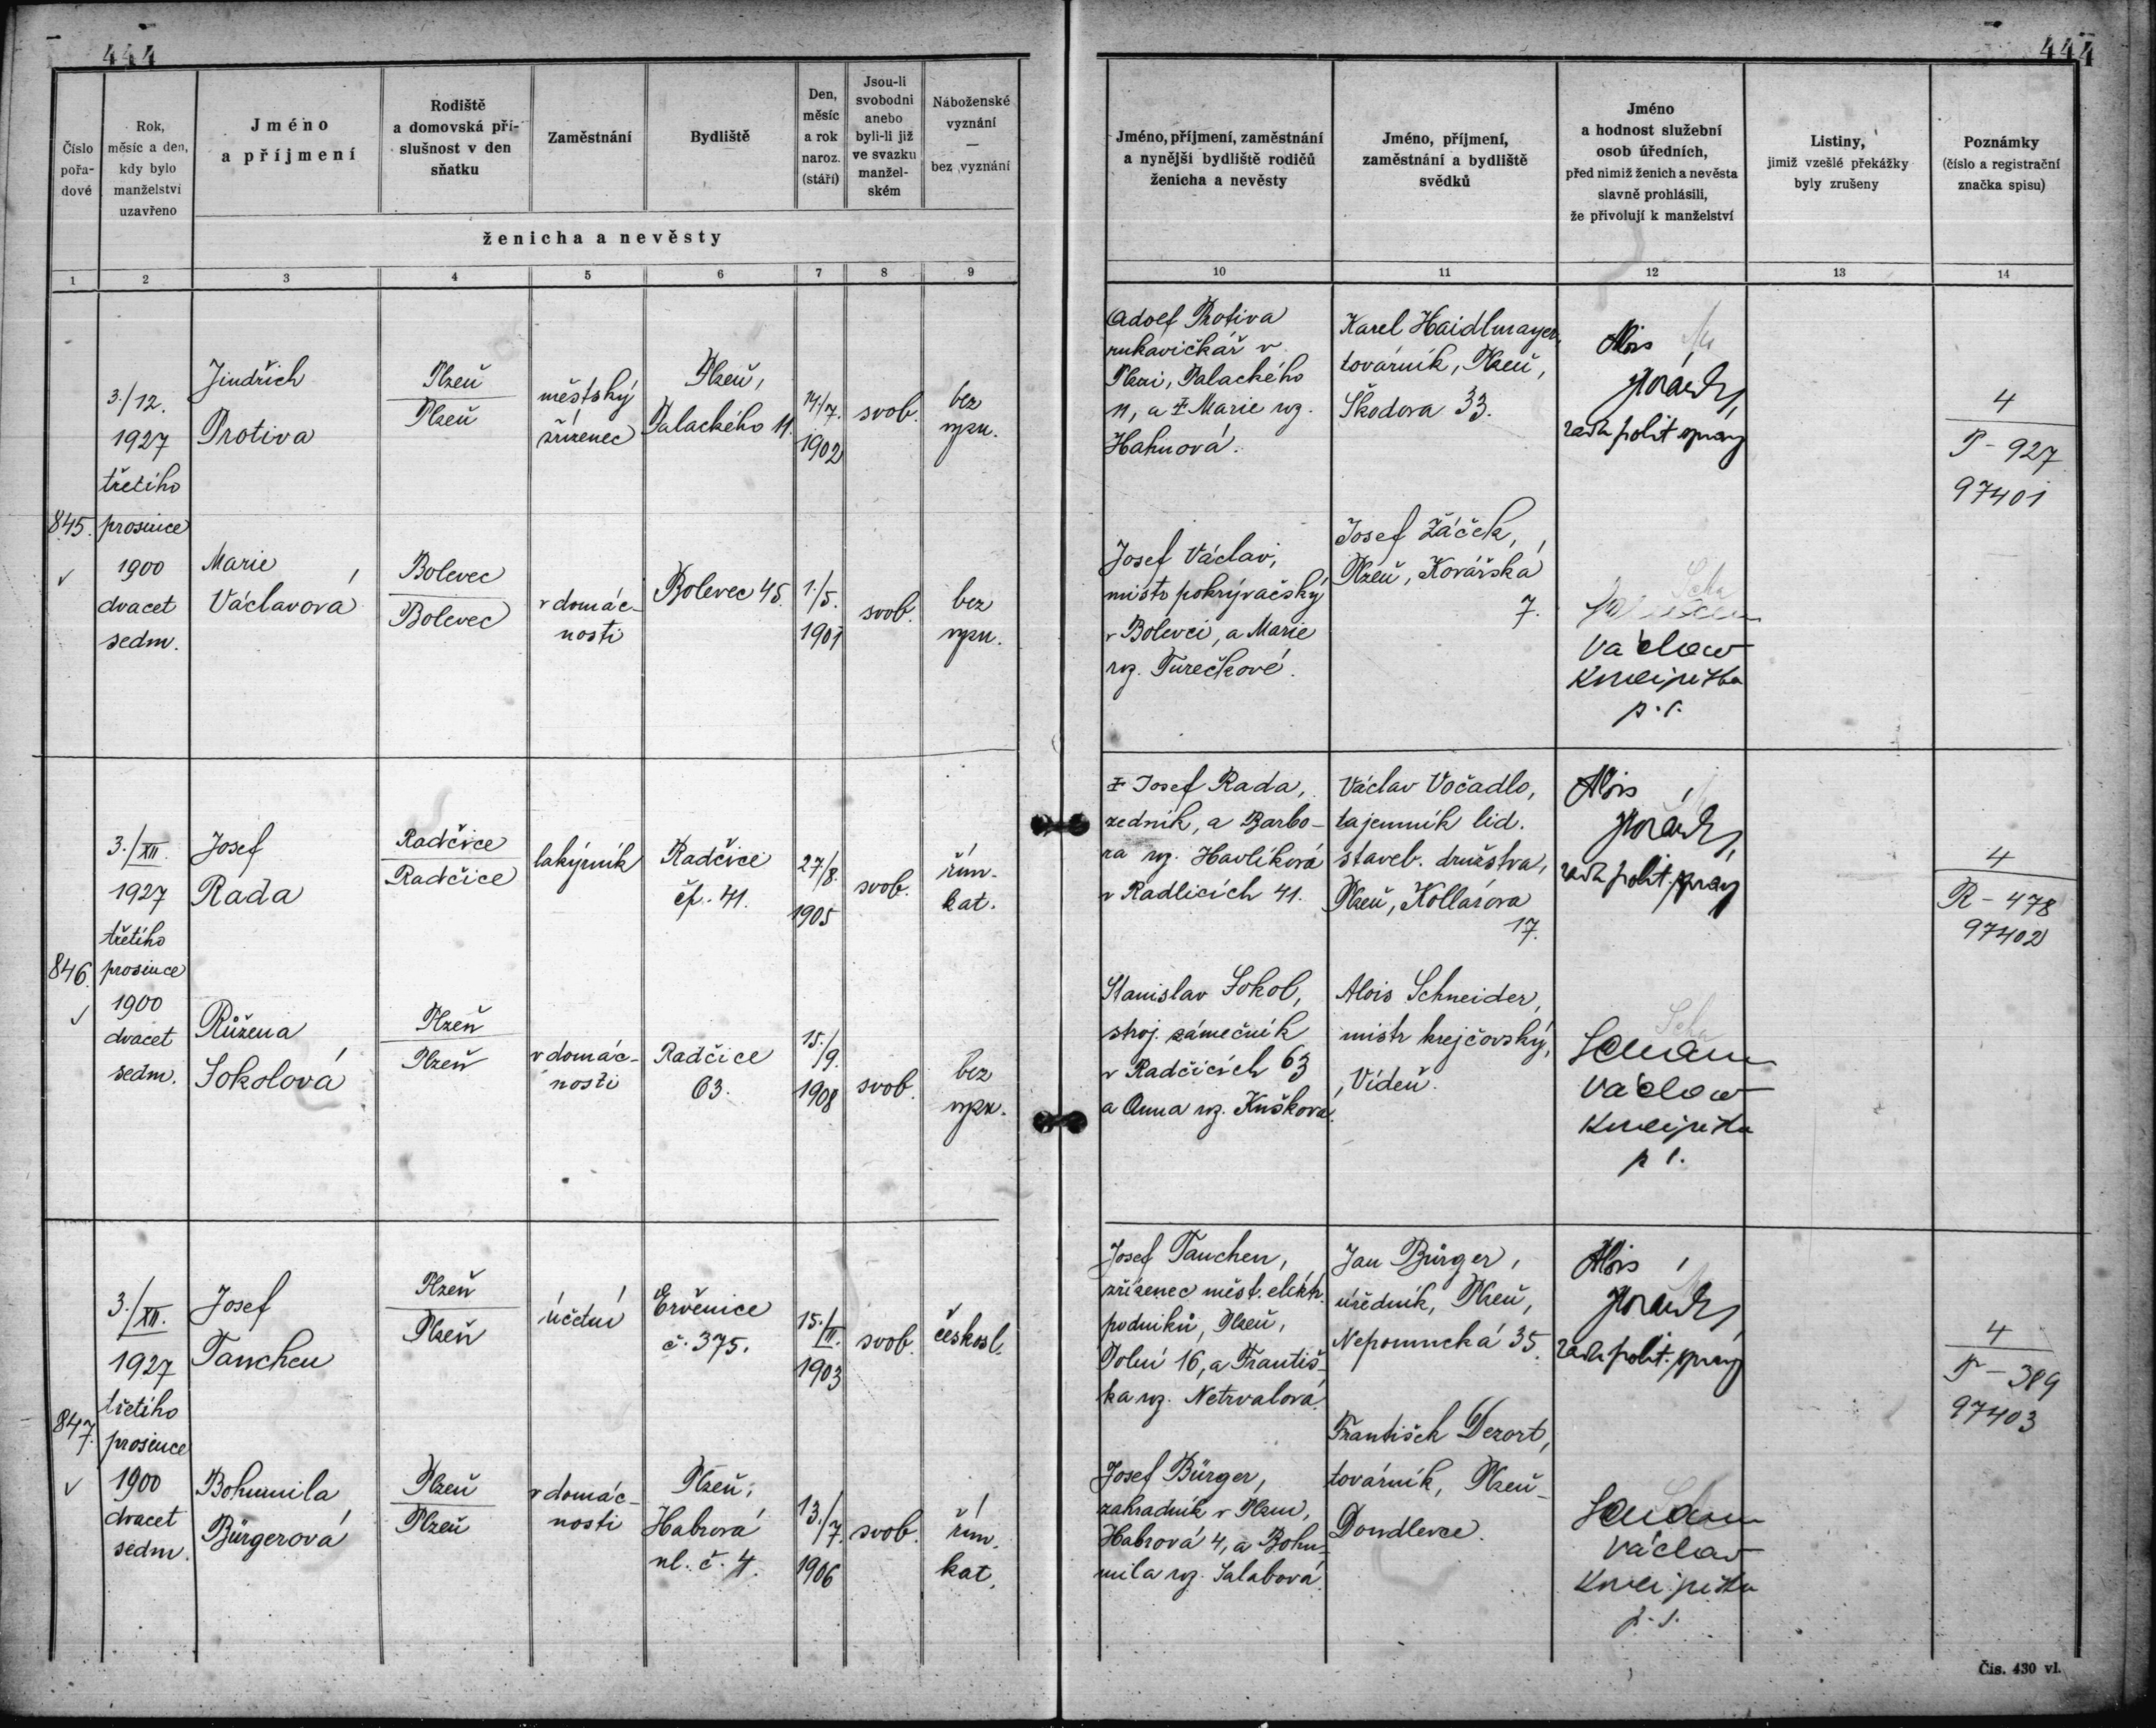 444
444
Číslo pořadové
Rok, měsíc a den, kdy bylo manželství uzavřeno
Jméno a příjmení
Rodiště a domovská příslušnost v den sňatku
Zaměstnání
Bydliště
Den, měsíc a rok naroz. (stáří)
Jsou-li svobodni anebo byli-li již ve svazku manželském
Náboženské vyznání — bez vyznání
ženicha a nevěsty
Jméno, příjmení, zaměstnání a nynější bydliště rodičů ženicha a nevěsty
Jméno, příjmení, zaměstnání a bydliště svědků
Jméno a hodnost služební osob úředních, před nimiž ženich a nevěsta slavně prohlásili, že přivolují k manželství
Listiny, jimiž vzešlé překážky byly zrušeny
Poznámky (číslo a registrační značka spisu)
1 2 3 4 5 6 7 8 9 10 11 12 13 14
845.
3./12.
1927
třetího
prosince
1900
dvacet
sedm.
Jindřich
Protiva
Plzeň
Plzeň
městský
zřízenec
Plzeň,
Palackého 11.
14/7.
1902
svob.
bez
vyzn.
Adolf Protiva
rukavičkář v
Plzni, Palackého
11, a ‡ Marie roz.
Hahnová.
Karel Haidlmayer,
továrník, Plzeň,
Škodova 33.
Alois
rada polit. správy
4
P - 927
97401
Marie
Václavová
Bolevec
Bolevec
v domác-
nosti
Bolevec 45.
1./5.
1901
svob.
bez
vyzn.
Josef Václav,
mistr pokrývačský
v Bolevci, a Marie
roz. Turečkové.
Josef Žáček,
Plzeň, Kovářská
7.
Václav
p. s.
846.
3./XII.
1927
třetího
prosince
1900
dvacet
sedm.
Josef
Rada
Radčice
Radčice
lakýrník
Radčice
čp. 41.
27/8.
1905
svob.
řím.
kat.
‡ Josef Rada,
zedník, a Barbo-
ra roz. Havlíková
v Radlicích 41.
Václav Vočadlo,
tajemník lid.
staveb. družstva,
Plzeň, Kollárova
17.
Alois
rada polit. správy
4
R - 478
97402
Růžena
Sokolová
Plzeň
Plzeň
v domác-
nosti
Radčice
63.
15./9.
1908
svob.
bez
vyzn.
Stanislav Sokol,
stroj. zámečník
v Radčicích 63
a Anna roz. Kušková.
Alois Schneider,
mistr krejčovský,
Vídeň.
Václav
p. s.
847.
3./XII.
1927
třetího
prosince
1900
dvacet
sedm.
Josef
Tauchen
Plzeň
Plzeň
účetní
Ervěnice
č. 375.
15./II.
1903
svob.
českosl.
Josef Tauchen,
zřízenec měst. elektr.
podniků, Plzeň,
Dolní 16, a Františ-
ka roz. Netrvalová.
Jan Bürger,
úředník, Plzeň,
Nepomucká 35.
Alois
rada polit. správy
4
T - 389
97403
Bohumila
Bürgerová
Plzeň
Plzeň
v domác-
nosti
Plzeň,
Habrová
ul. č. 4.
13./7.
1906
svob.
řím.
kat.
Josef Bürger,
zahradník v Plzni,
Habrová 4, a Bohu-
mila roz. Salabová.
František Dezort,
továrník, Plzeň-
Doudlevce.
Václav
p. s.
Čís. 430 vl.